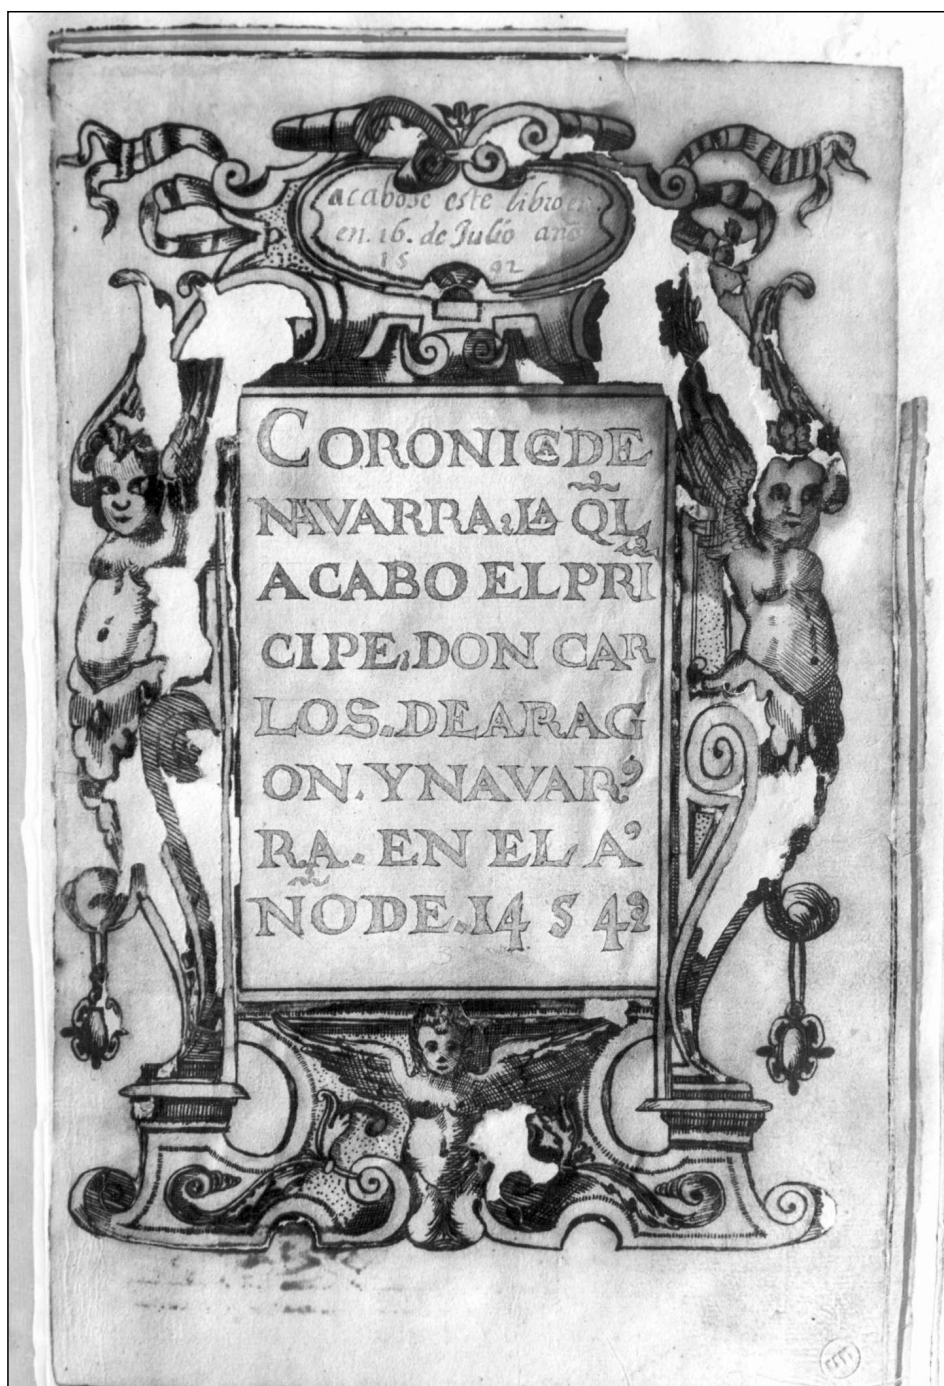 acabose este libro en.
en. 16. de Julio año
15 92
CORONICA DE
NAVARRA. LA QL
ACABO EL PRI
CIPE. DON CAR
LOS. DE ARAG
ON. Y NAVAR
RA. EN EL A
ÑO DE. 1454